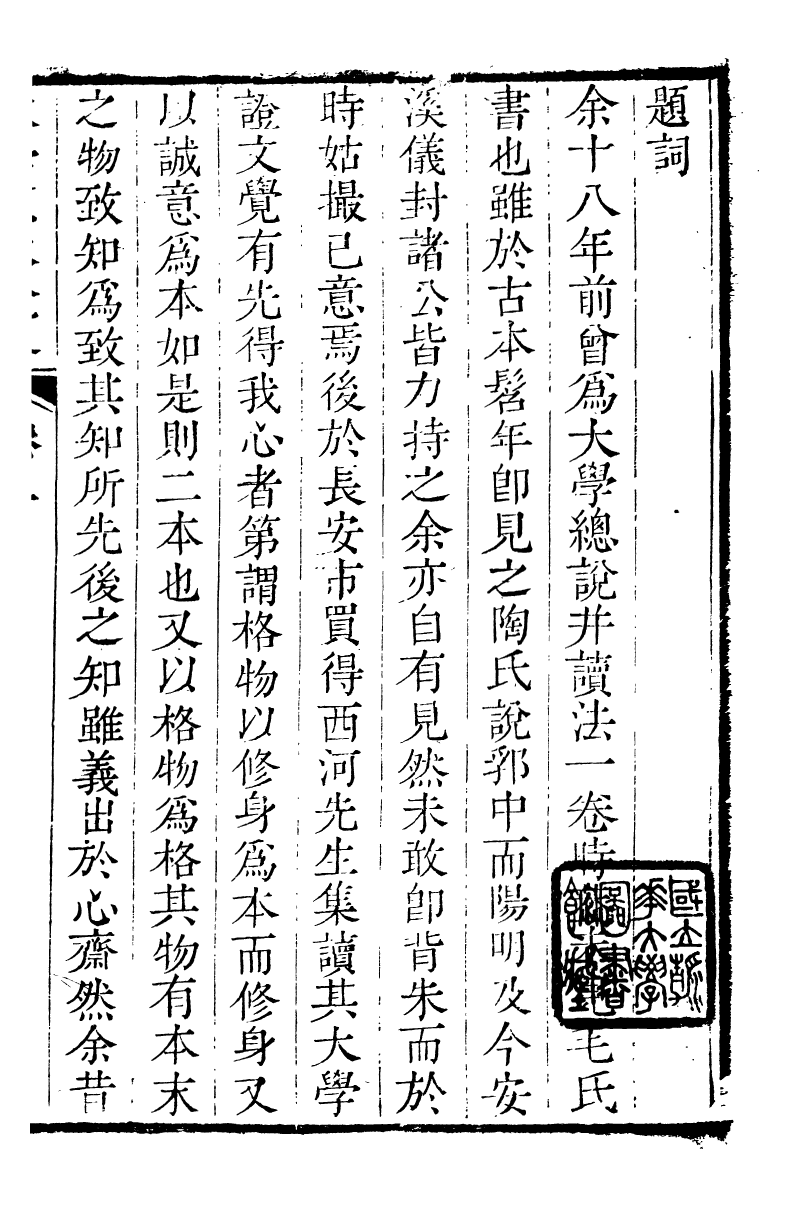 題詞
余十八年前曾爲大學總說并讀法一卷時毛氏
書也雖於古本髫年卽見之陶氏說郛中而陽明及今安
溪儀封諸公皆力持之余亦自有見然未敢卽背朱而於
時姑撮已意焉後於長安市買得西河先生集讀其大學
證文覺有先得我心者第謂格物以修身爲本而修身又
以誠意爲本如是則二本也又以格物爲格其物有本末
之物致知爲致其知所先後之知雖義出於心齋然余昔
國立
華大學
圖書